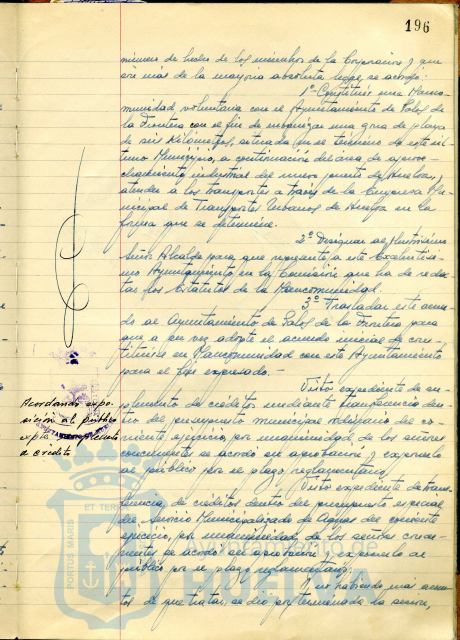 196
número de hecho de los miembros de la Corporación y que
son más de la mayoría absoluta legal, se acordó:
1º- Constituir una Manco-
munidad voluntaria con el Ayuntamiento de Palos de
la Frontera con el fin de urbanizar una zona de playa
de seis kilómetros, situada en el término de este úl-
timo Municipio, a continuación del área de aprove-
chamiento industrial del nuevo puerto de Huelva,
atender a los transportes a través de la Empresa Mu-
nicipal de Transportes Urbanos de Huelva en la
forma que se determine.
2º Designar al Ilustrísimo
Señor Alcalde para que represente a este Excelentísi-
mo Ayuntamiento en la Comisión que ha de redac-
tar los Estatutos de la Mancomunidad.
3º Trasladar este acuer-
do al Ayuntamiento de Palos de la Frontera para
que a su vez adopte el acuerdo inicial de cons-
tituirse en Mancomunidad con este Ayuntamiento
para el fin expresado.-
Acordando expo-
sición al público
expte. suplemento
a credito
Visto expediente de su-
plemento de créditos mediante transferencia den-
tro del presupuesto municipal ordinario del co-
rriente ejercicio, por unanimidad de los señores
concurrentes se acordó su aprobación y exponerlo
al público por el plazo reglamentario.
Visto expediente de trans-
ferencia de créditos dentro del presupuesto especial
del Servicio Municipalizado de Aguas del corriente
ejercicio, por unanimidad de los señores concu-
rrentes se acordó su aprobación y exponerlo al
público por el plazo reglamentario.
Y no habiendo más asun-
tos de que tratar, se dio por terminada la sesión,
PORTUS MARIS
ET TERRAE
HUELVA